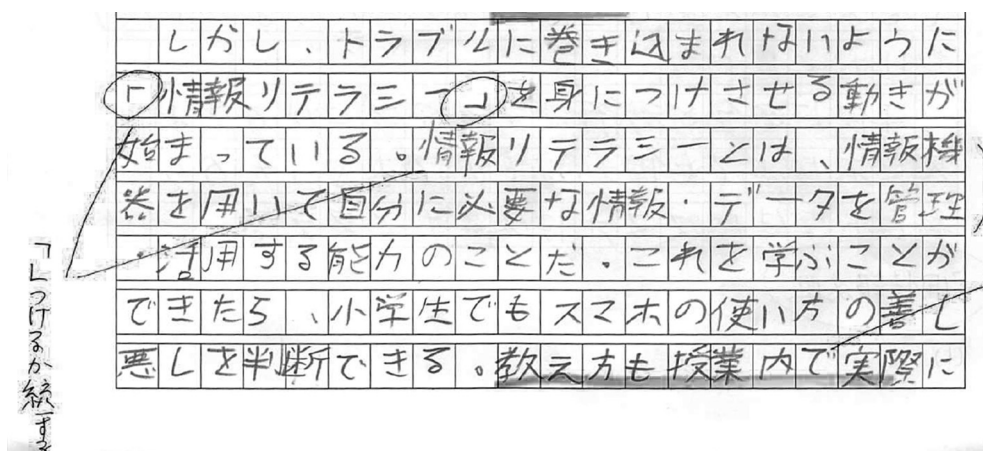 しかし、トラブルに巻き込まれないように
「情報リテラシー」を身につけさせる動きが
始まっている。情報リテラシーとは、情報機
器を用いて自分に必要な情報・データを管理
・活用する能力のことだ。これを学ぶことが
できたら、小学生でもスマホの使い方の善し
悪しを判断できる。教え方も授業内で実際に
「」つけるか統一する